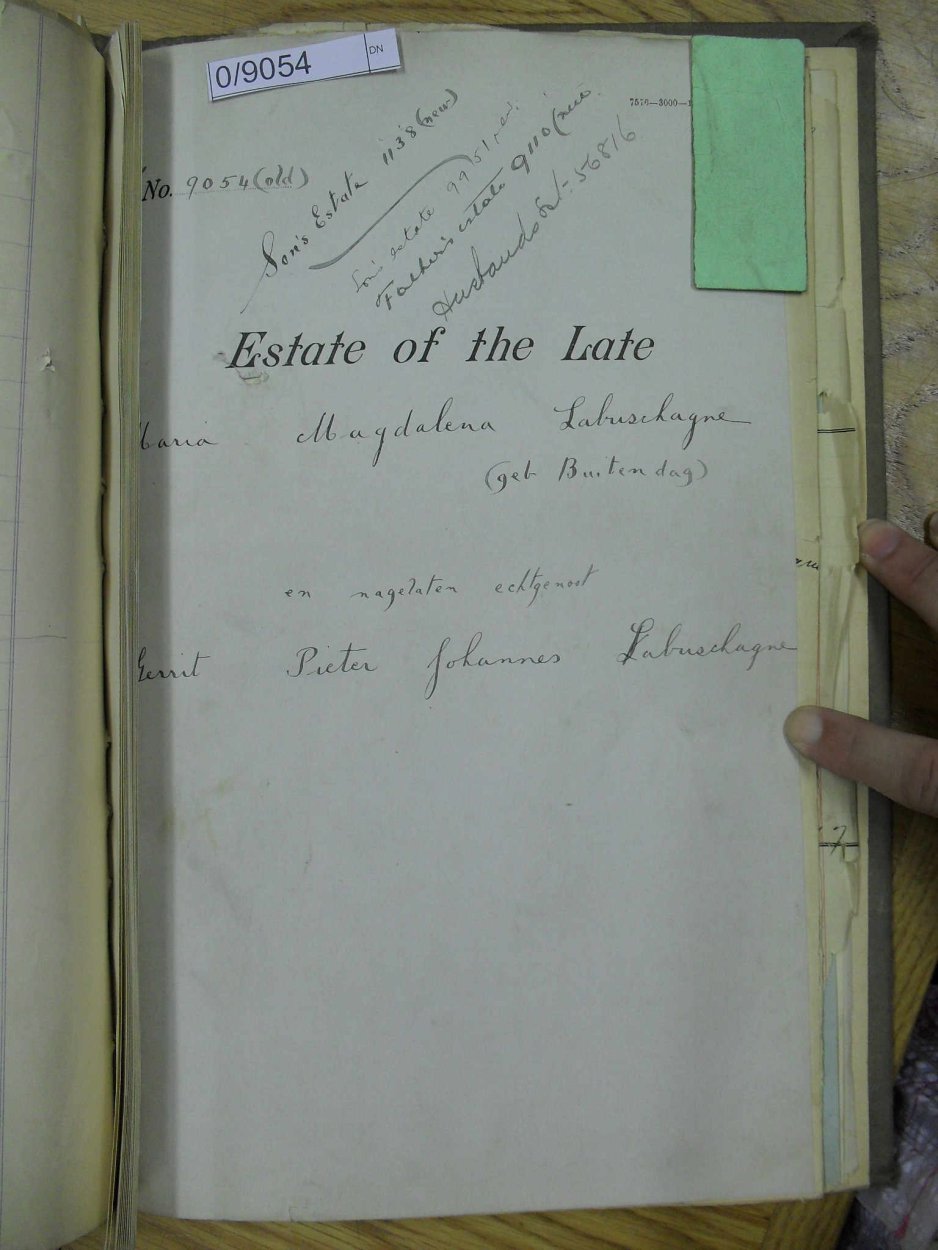 0/9054 DN
7570—3000—1
No. 9054 (old)
Son's Estate 1138 (new)
Son's estate 9951 new
Father's estate 9110 (new
Husbands Est:- 56816
Estate of the Late
Maria Magdalena Labuschagne
(geb Buitendag)
en nagelaten echtgenoot
Gerrit Pieter Johannes Labuschagne
7